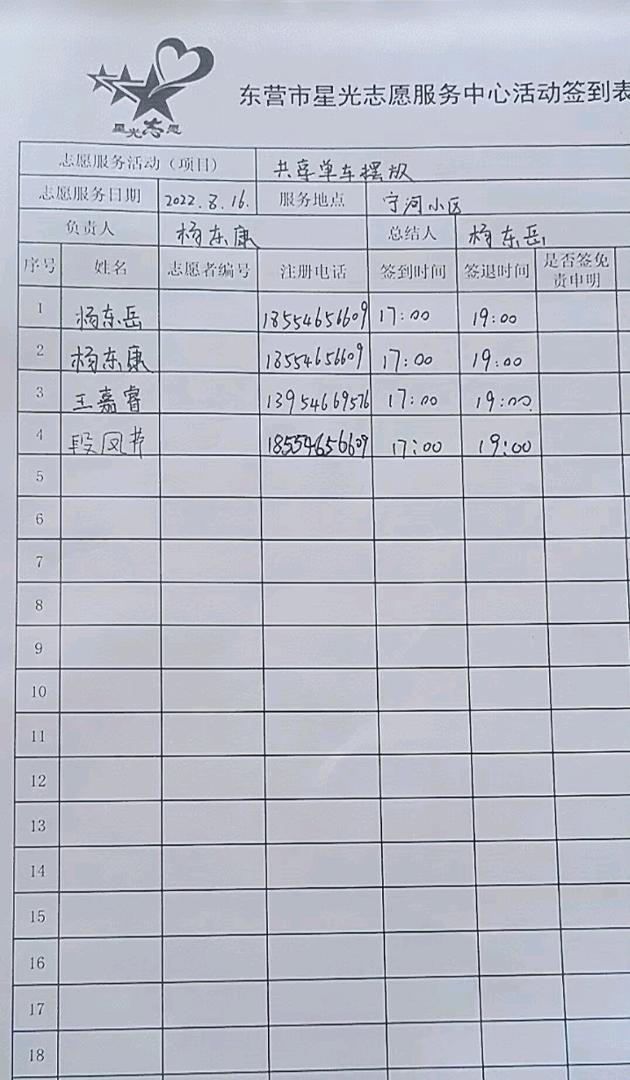 星光志愿
东营市星光志愿服务中心活动签到表
志愿服务活动（项目） 共享单车摆放
志愿服务日期 2022.8.16. 服务地点 宁河小区
负责人 杨东康 总结人 杨东岳
序号 姓名 志愿者编号 注册电话 签到时间 签退时间 是否签免责申明
1 杨东岳 18554656609 17:00 19:00
2 杨东康 18554656609 17:00 19:00
3 王嘉睿 13954669576 17:00 19:00
4 段凤书 18554656609 17:00 19:00
5
6
7
8
9
10
11
12
13
14
15
16
17
18